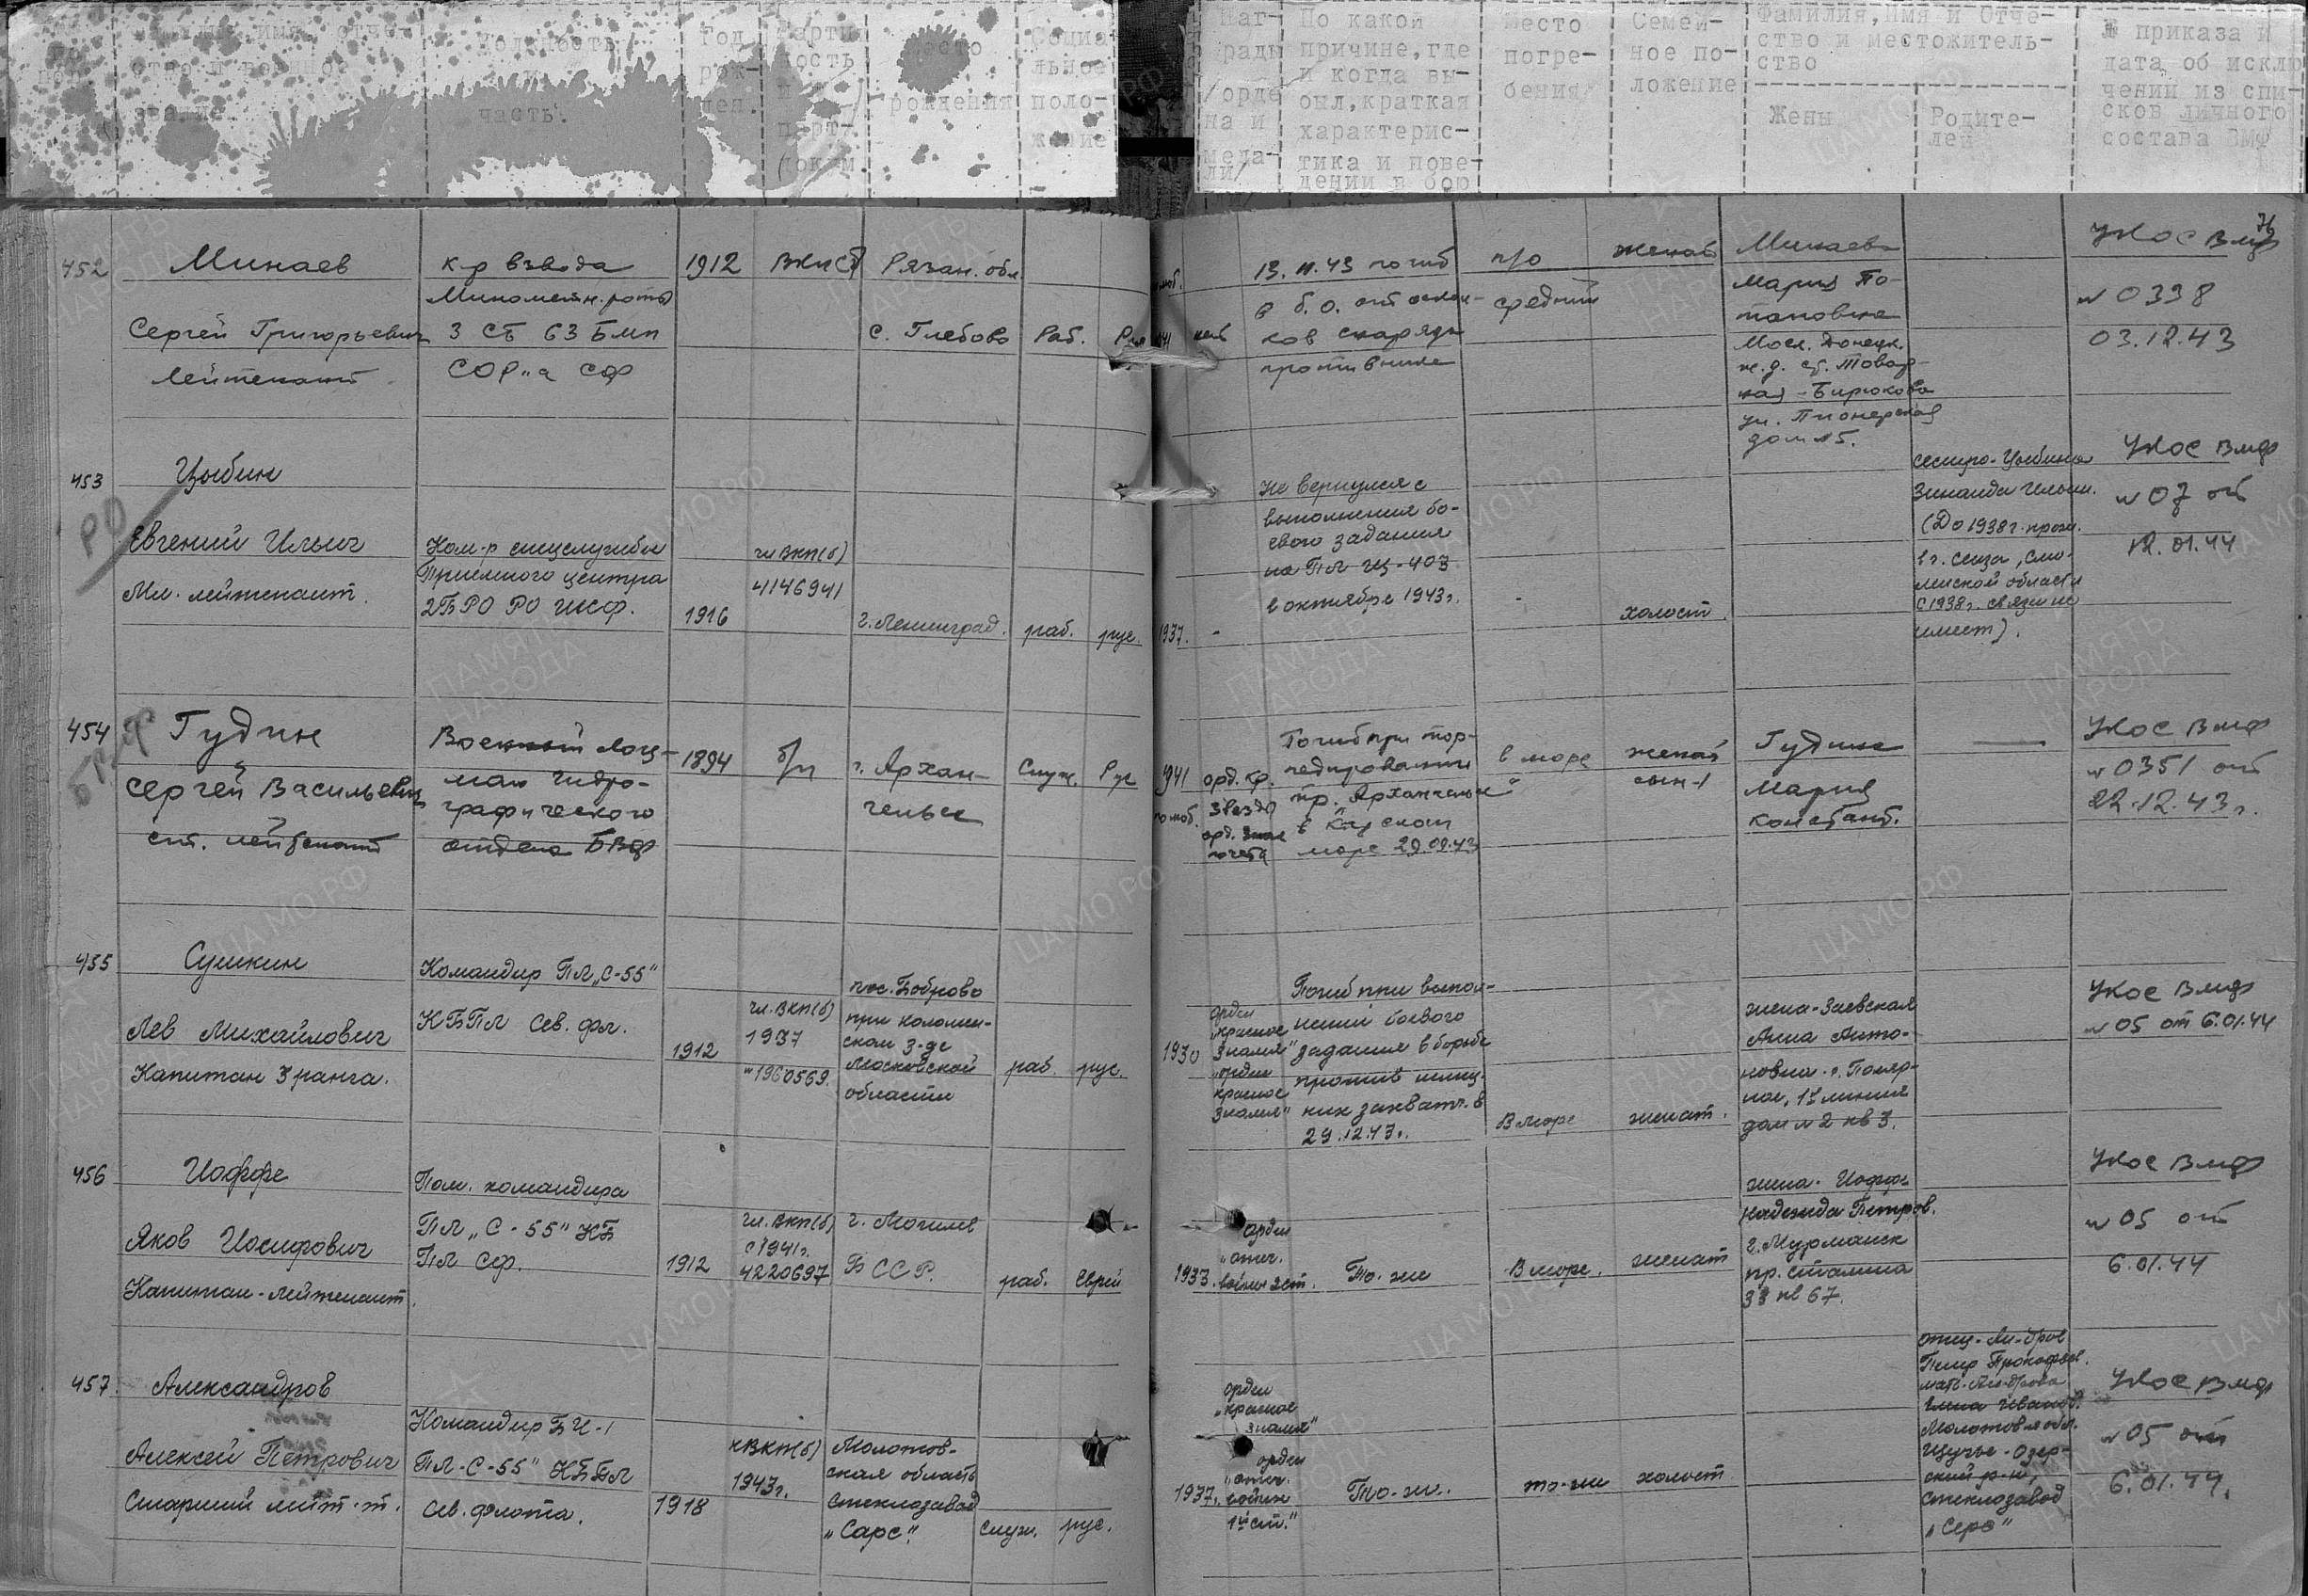 Год
часть.
рождения
Социа
льное
поло-
жение
По какой
причине, где
и когда вы-
был, краткая
характерис-
тика и пове-
дении в бою
Место
погре-
бения
Семей-
ное по-
ложение
Фамилия, имя и Отче-
ство и местожитель-
ство
Жены
Родите-
лей
№ приказа и
дата об исклю
чении из спи-
сков личного
состава ВМФ
452
Минаев
Сергей Григорьевич
лейтенант
к-р взвода
Минометн. роты
3 СБ 63 Бмп
СОР"а СФ
1912
ВКП(б)
Рязан. обл.
с. Глебово
Раб.
13.11.43 погиб
в б.о. от оскол-
ков снаряда
противника
п/о
средний
женат
Минаева
Мария По-
таповна
Моск. Донецк.
ж.д. ст. Товар-
ная - Бирюково
ул. Пионерская
дом №5.
УКОС ВМФ
№ 0338
03.12.43
453
РО
Цыбин
Евгений Ильич
Мл. лейтенант.
Ком-р спецслужбы
Приемного центра
2БРО РО ШСФ.
1916
чл ВКП(б)
4146941
г. Ленинград.
раб.
рус.
1937.
-
Не вернулся с
выполнения бо-
евого задания
на ПЛ Щ-403
в октябре 1943г.
-
холост.
сестра - Цыбина
Зинаида Ильин.
(До 1938г. прож.
С 1938г. связи не
имеет).
УКОС ВМФ
№ 07 от
12.01.44
454
Гудин
Сергей Васильевич
ст. лейтенант
Военный лоц-
ман Гидро-
графического
отдела БВФ
1894
б/п
г. Архан-
гельск
Служ.
Рус
1941
по моб.
орд. Кр.
Звезда
орд. Знак
почета
Погиб при тор-
педировании
тр. Архангельск
в Карском
море 29.09.43
в море
женат
сын-1
Гудина
Мария
Констант.
УКОС ВМФ
№ 0351 от
22.12.43г.
455
Сушкин
Лев Михайлович
Капитан 3 ранга.
Командир ПЛ „С-55"
КБПЛ Сев. фл.
1912
чл. ВКП(б)
1937
№1960569.
пос. Боброво
при коломен-
ском з-де
Московской
области
раб.
рус.
1930
орден
„красное
знамя"
„орден
красное
знамя"
Погиб при выпол-
нении боевого
задания в борьбе
против немец-
ких захватч. в
29.12.43г.
В море
женат.
жена - Заевская
Анна Анто-
новна г. Поляр-
ное, 1я линия
дом №2 кв 3.
УКОС ВМФ
№ 05 от 6.01.44
456
Иоффе
Яков Иосифович
Капитан-лейтенант.
Пом. командира
ПЛ „С-55" КБ
ПЛ СФ.
1912
чл. ВКП(б)
с 1941г.
4220697
г. Могилев
БССР.
раб.
еврей
1933.
орден
„отеч.
войны 2 ст.
То-же
В море.
женат
жена - Иоффе
Надежда Петров.
г. Мурманск
пр. Сталина
33 кв 67.
УКОС ВМФ
№ 05 от
6.01.44
457.
Александров
Алексей Петрович
Старший лейт-т.
Командир БЧ-1
ПЛ-С-55" КБПЛ
Сев. флота.
1918
кВКП(б)
1943г.
Молотов-
ская область
Стеклозавод
„Сарс".
служ.
рус.
1937г.
орден
„красное
знамя"
орден
„отеч.
войны
1й ст."
То-же.
то-же
холост
отец - Ал-дров
Петр Прокофьев.
мать - Ал-дрова
Елена Иванов.
Молотовская обл.
Щучье-Озер-
ский р-н,
стеклозавод
„Серс"
УКОС ВМФ
№ 05 от
6.01.44.